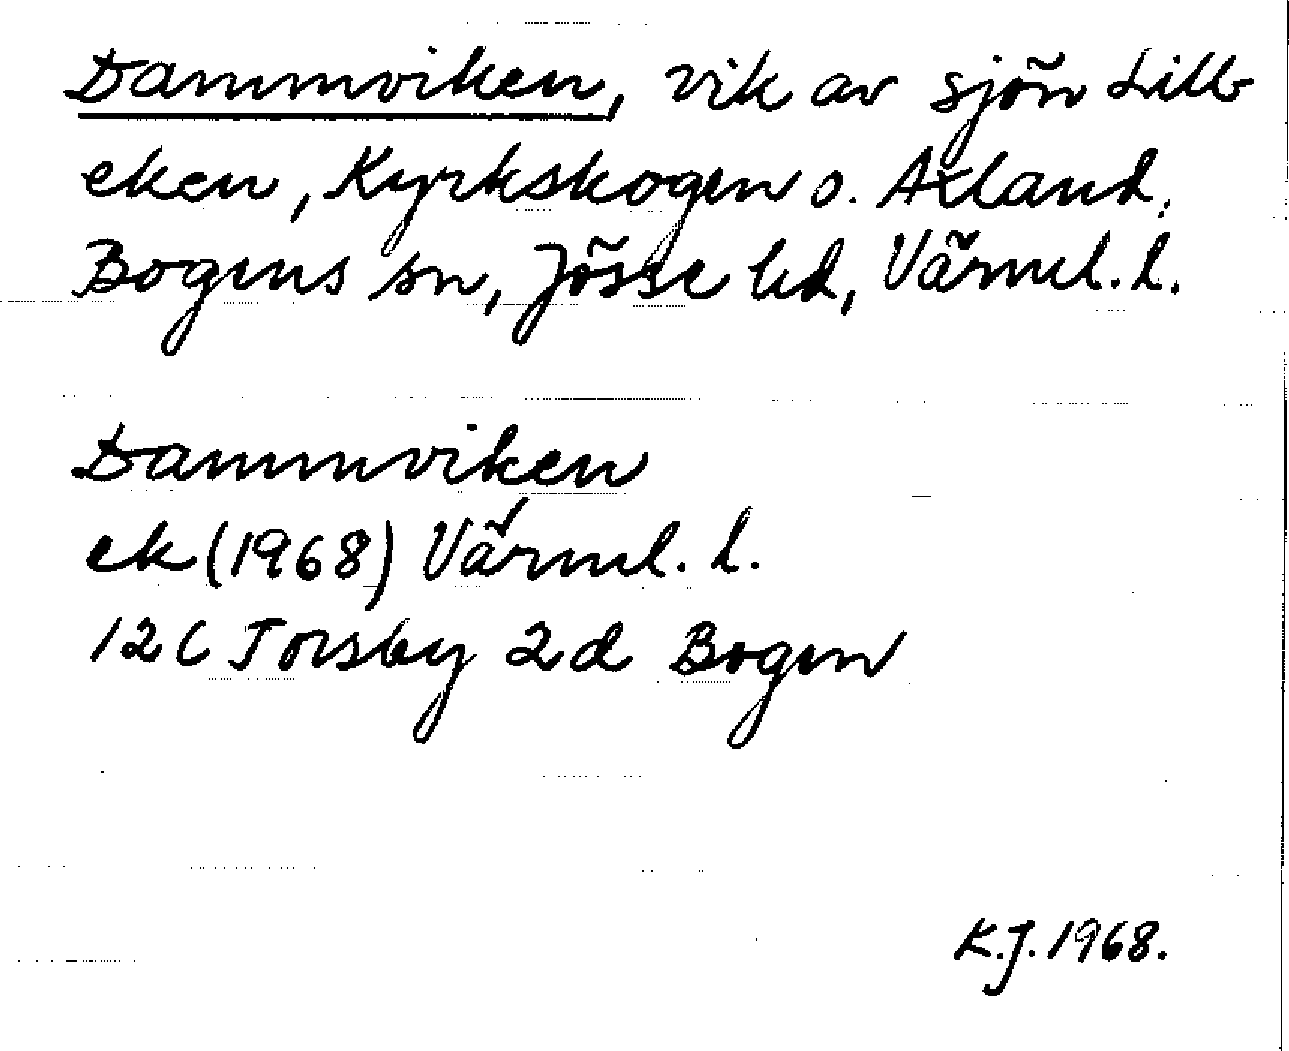 Dammviken, vik av sjön Lill-
eken, Kyrkskogen o. Axland,
Bogens sn, Jösse hd, Värml. l.
Dammviken
ek (1968) Värml. l.
12 C Torsby 2d Bogen
K.J. 1968.